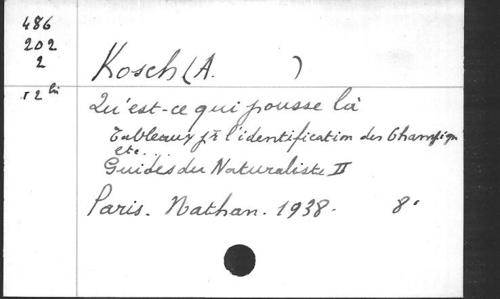 486
202
2
r 2 bis
Kosch (A. )
Qu'est-ce qui pousse là
Tableaux pr l'identification des Champign
etc...
Guides du Naturaliste II
Paris. Nathan. 1938. 8°